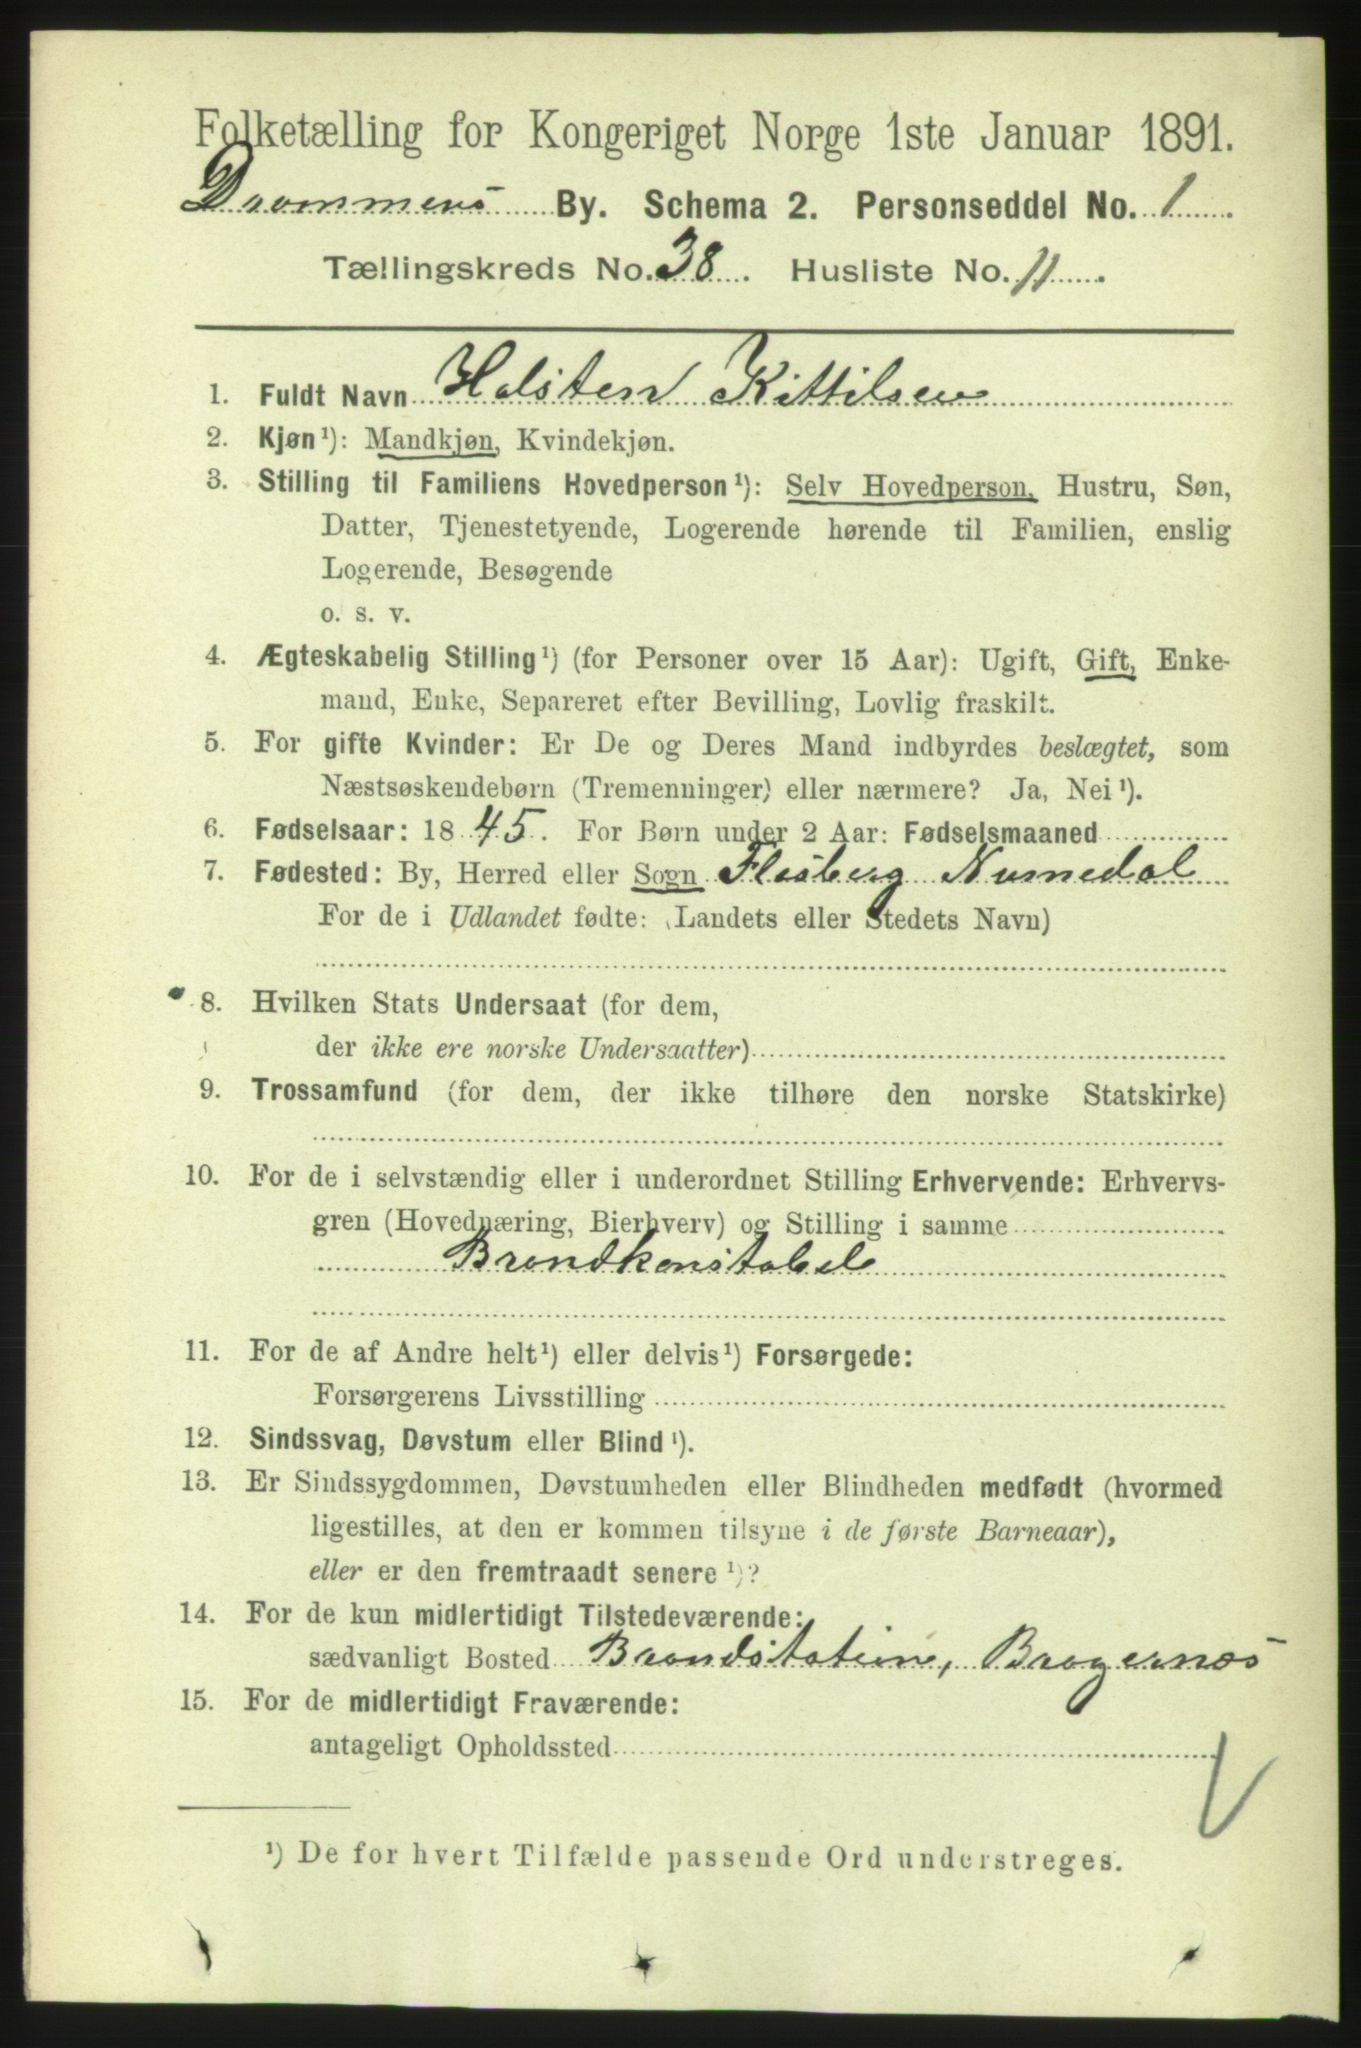 Folketælling for Kongeriget Norge 1ste Januar 1891.
Drammens By. Schema 2. Personseddel No. 1.
Tællingskreds No. 38. Husliste No. 11.
1. Fuldt Navn Halsten Kittilsen
2. Kjøn¹): Mandkjøn, Kvindekjøn.
3. Stilling til Familiens Hovedperson¹): Selv Hovedperson, Hustru, Søn,
Datter, Tjenestetyende, Logerende hørende til Familien, enslig
Logerende, Besøgende
o. s. v.
4. Ægteskabelig Stilling¹) (for Personer over 15 Aar): Ugift, Gift, Enke-
mand, Enke, Separeret efter Bevilling, Lovlig fraskilt.
5. For gifte Kvinder: Er De og Deres Mand indbyrdes beslægtet, som
Næstsøskendebørn (Tremenninger) eller nærmere? Ja, Nei¹).
6. Fødselsaar: 1845. For Børn under 2 Aar: Fødselsmaaned
7. Fødested: By, Herred eller Sogn Flesberg Numedal
For de i Udlandet fødte: (Landets eller Stedets Navn)
8. Hvilken Stats Undersaat (for dem,
der ikke ere norske Undersaatter)
9. Trossamfund (for dem, der ikke tilhøre den norske Statskirke)
10. For de i selvstændig eller i underordnet Stilling Erhvervende: Erhvervs-
gren (Hovednæring, Bierhverv) og Stilling i samme
Brandkonstabel
11. For de af Andre helt¹) eller delvis¹) Forsørgede:
Forsørgerens Livsstilling
12. Sindssvag, Døvstum eller Blind¹).
13. Er Sindssygdommen, Døvstumheden eller Blindheden medfødt (hvormed
ligestilles, at den er kommen tilsyne i de første Barneaar),
eller er den fremtraadt senere¹)?
14. For de kun midlertidigt Tilstedeværende:
sædvanligt Bosted Brandstation, Bragernæs
15. For de midlertidigt Fraværende:
antageligt Opholdssted
¹) De for hvert Tilfælde passende Ord understreges.